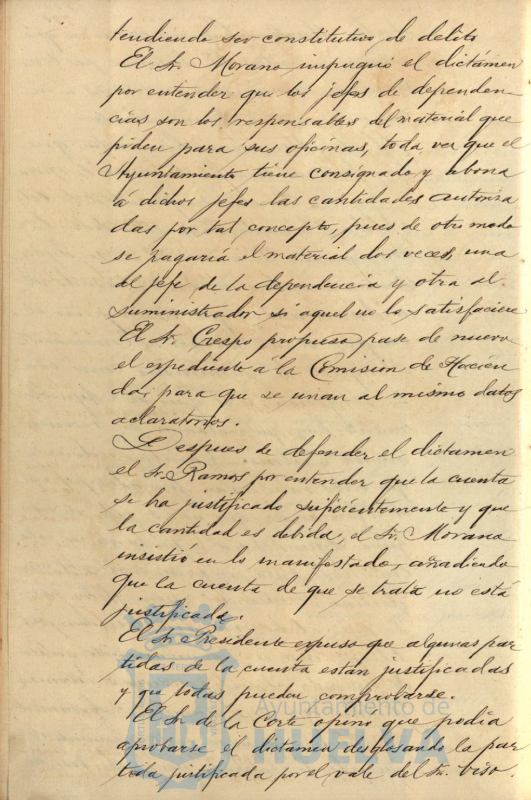 tendiendo ser constitutivo de delito
El Sr. Morano impugnó el dictámen
por entender que los jefes de dependen-
cias son los responsables del material que
piden para sus oficinas, toda vez que el
Ayuntamiento tiene consignado y abona
á dichos jefes las cantidades autoriza
das por tal concepto, pues de otro modo
se pagaria el material dos veces, una
al jefe de la dependencia y otra al
suministrador si aquel no lo satisfaciere
El Sr. Crespo propuso pase de nuevo
el expediente á la Comision de Hacien
da, para que se unan al mismo datos
aclaratorios.
Despues de defender el dictamen
el Sr. Ramos por entender que la cuenta
se ha justificado suficientemente y que
la cantidad es debida, el Sr. Morano
insistió en lo manifestado, añadiendo
que la cuenta de que se trata no está
justificada.
El Sr. Presidente expuso que algunas par
tidas de la cuenta estan justificadas
y que todas pueden comprobarse.
El Sr. de la Corte opinó que podia
aprobarse el dictamen desglosando la par
tida justificada por el vale del Sr.
Ayuntamiento de
HUELVA